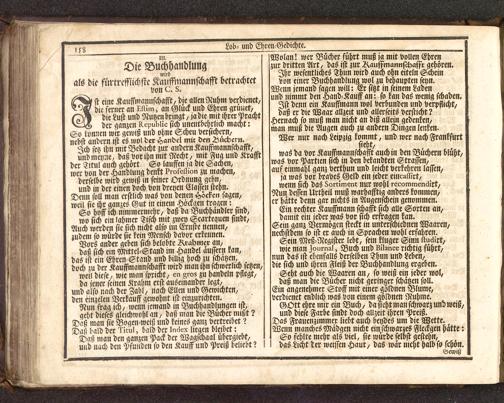 158
Lob- und Ehren-Gedichte.
III.
Die Buchhandlung
wird
als die fürtrefflichste Kauffmannschafft betrachtet
von C. S.
Ist eine Kauffmannschafft, die allen Ruhm verdienet,
die ferner an Estim, an Glück und Ehren grünet,
die Lust und Nutzen bringt, ja die mit ihrer Pracht
der gantzen Republic sich unentbehrlich macht:
So können wir gewiß und ohne Scheu versichern,
nebst andern ist es wol der Handel mit den Büchern.
Ich setz ihn mit Bedacht zur andern Kauffmannschafft,
und meyne, daß vor ihn mit Recht, mit Fug und Krafft
der Titul auch gehört. So lauffen ja die Sachen,
wer von der Handlung denkt Profession zu machen,
derselbe wird gewiß in seiner Ordnung gehn,
und in der einen doch von dreyen Classen stehn.
Denn soll man erstlich was von denen Höcken sagen,
weil sie ihr gantzes Gut in einen Höcken tragen:
So hoff ich nimmermehr, daß da Buchhändler sind,
wo sich ein lahmer Tisch mit zwey Scartequen findt,
Auch werden sie sich nicht also im Ernste nennen,
zudem so würde sie kein Mensch davor erkennen.
Vors ander geben sich belobte Kræhmer an,
das sich ein Mittel-Stadt im Handel äusern kan,
das ist ein Ehren-Stand und billig hoch zu schätzen,
doch zu der Kauffmannschafft wird man ihn schwerlich setzen,
weil diese, wie man spricht, en gros zu handeln pflegt,
da jener seinen Krahm erst auseinander legt,
und also nach der Zahl, nach Ellen und Gewichten,
den eingelen Verkauff gewohnt ist einzurichten.
Nun frag ich, wenn iemand in Buchhandlungen ist,
geht dieses gleichwohl an, daß man die Bücher mißt?
Daß man sie Bogen-weiß und keines gantz vertreibet?
Daß bald der Titul, bald der Index liegen bleibet:
Daß man den gantzen Pack der Wagschaal übergiebt,
und nach den Pfunden so den Kauff und Preiß beliebt?
Wolan! wer Bücher führt muß ja mit vollen Ehren
zur dritten Art, das ist zur Kauffmannschafft gehören.
Ihr wesentliches Thun wird auch ohn eiteln Schein
von einer Buchhandlung wol zu behaupten seyn.
Wenn jemand sagen will: Er sitzt in seinem Laden
und nimmt den Hand-Kauff an: so kan das wenig schaden.
Ist denn ein Kauffmann wol verbunden und verpflicht,
daß er die Waar alliget und allerseits verspricht?
Hernach so muß man nicht an diß allein gedencken,
man muß die Augen auch zu andern Dingen lencken.
Wer nur nach Leipzig kommt, und wer nach Franckfurt
sieht,
was da vor Kauffmannschafft auch in den Büchern blüht,
was vor Partien sich in den bekandten Strassen,
auf einmahl gantz verthun und leicht verführen lassen,
ja was vor bares Geld ein jeder encassirt,
wenn sich das Sortiment nur wohl recommendirt,
Nun dessen Urtheil muß warhafftig anders kommen,
er hätte denn gar nichts in Augenschein genommen.
Ein rechter Kauffmann schafft sich alle Sorten an,
damit ein jeder was vor sich erfragen kan.
Sein gantz Vermögen steckt in unterschiednen Waaren,
nechstdem so ist er auch in Sprachen wohl erfahren.
Sein Meß-Register lebt, sein kluger Sinn studirt,
wie man Journal, Buch und Bilance richtig führt,
nun das ist ebenfalls derselben Thun und Leben,
die sich und ihren Fleiß der Buchhandlung ergeben.
Seht auch die Waaren an, so weiß ein jeder wol,
daß man die Bücher nicht geringer schätzen soll.
Ein angenehmer Stoff mit einer göldnen Blume,
verdienet endlich was von einem göldnen Ruhme.
Gönt ehre mir ein Buch, da sicht man schwarz und weiß,
und diese Farbe findt doch allzeit ihren Preiß.
Das Frauenzimmer liebt auch beydes um die Wette.
Wenn manches Mädgen nicht ein schwarzes Fleckgen hätte:
So fehlte mehr als viel, sie würde selbst gestehn,
das Licht der weissen Haut, das wär nicht halb so schön.
Gewiß